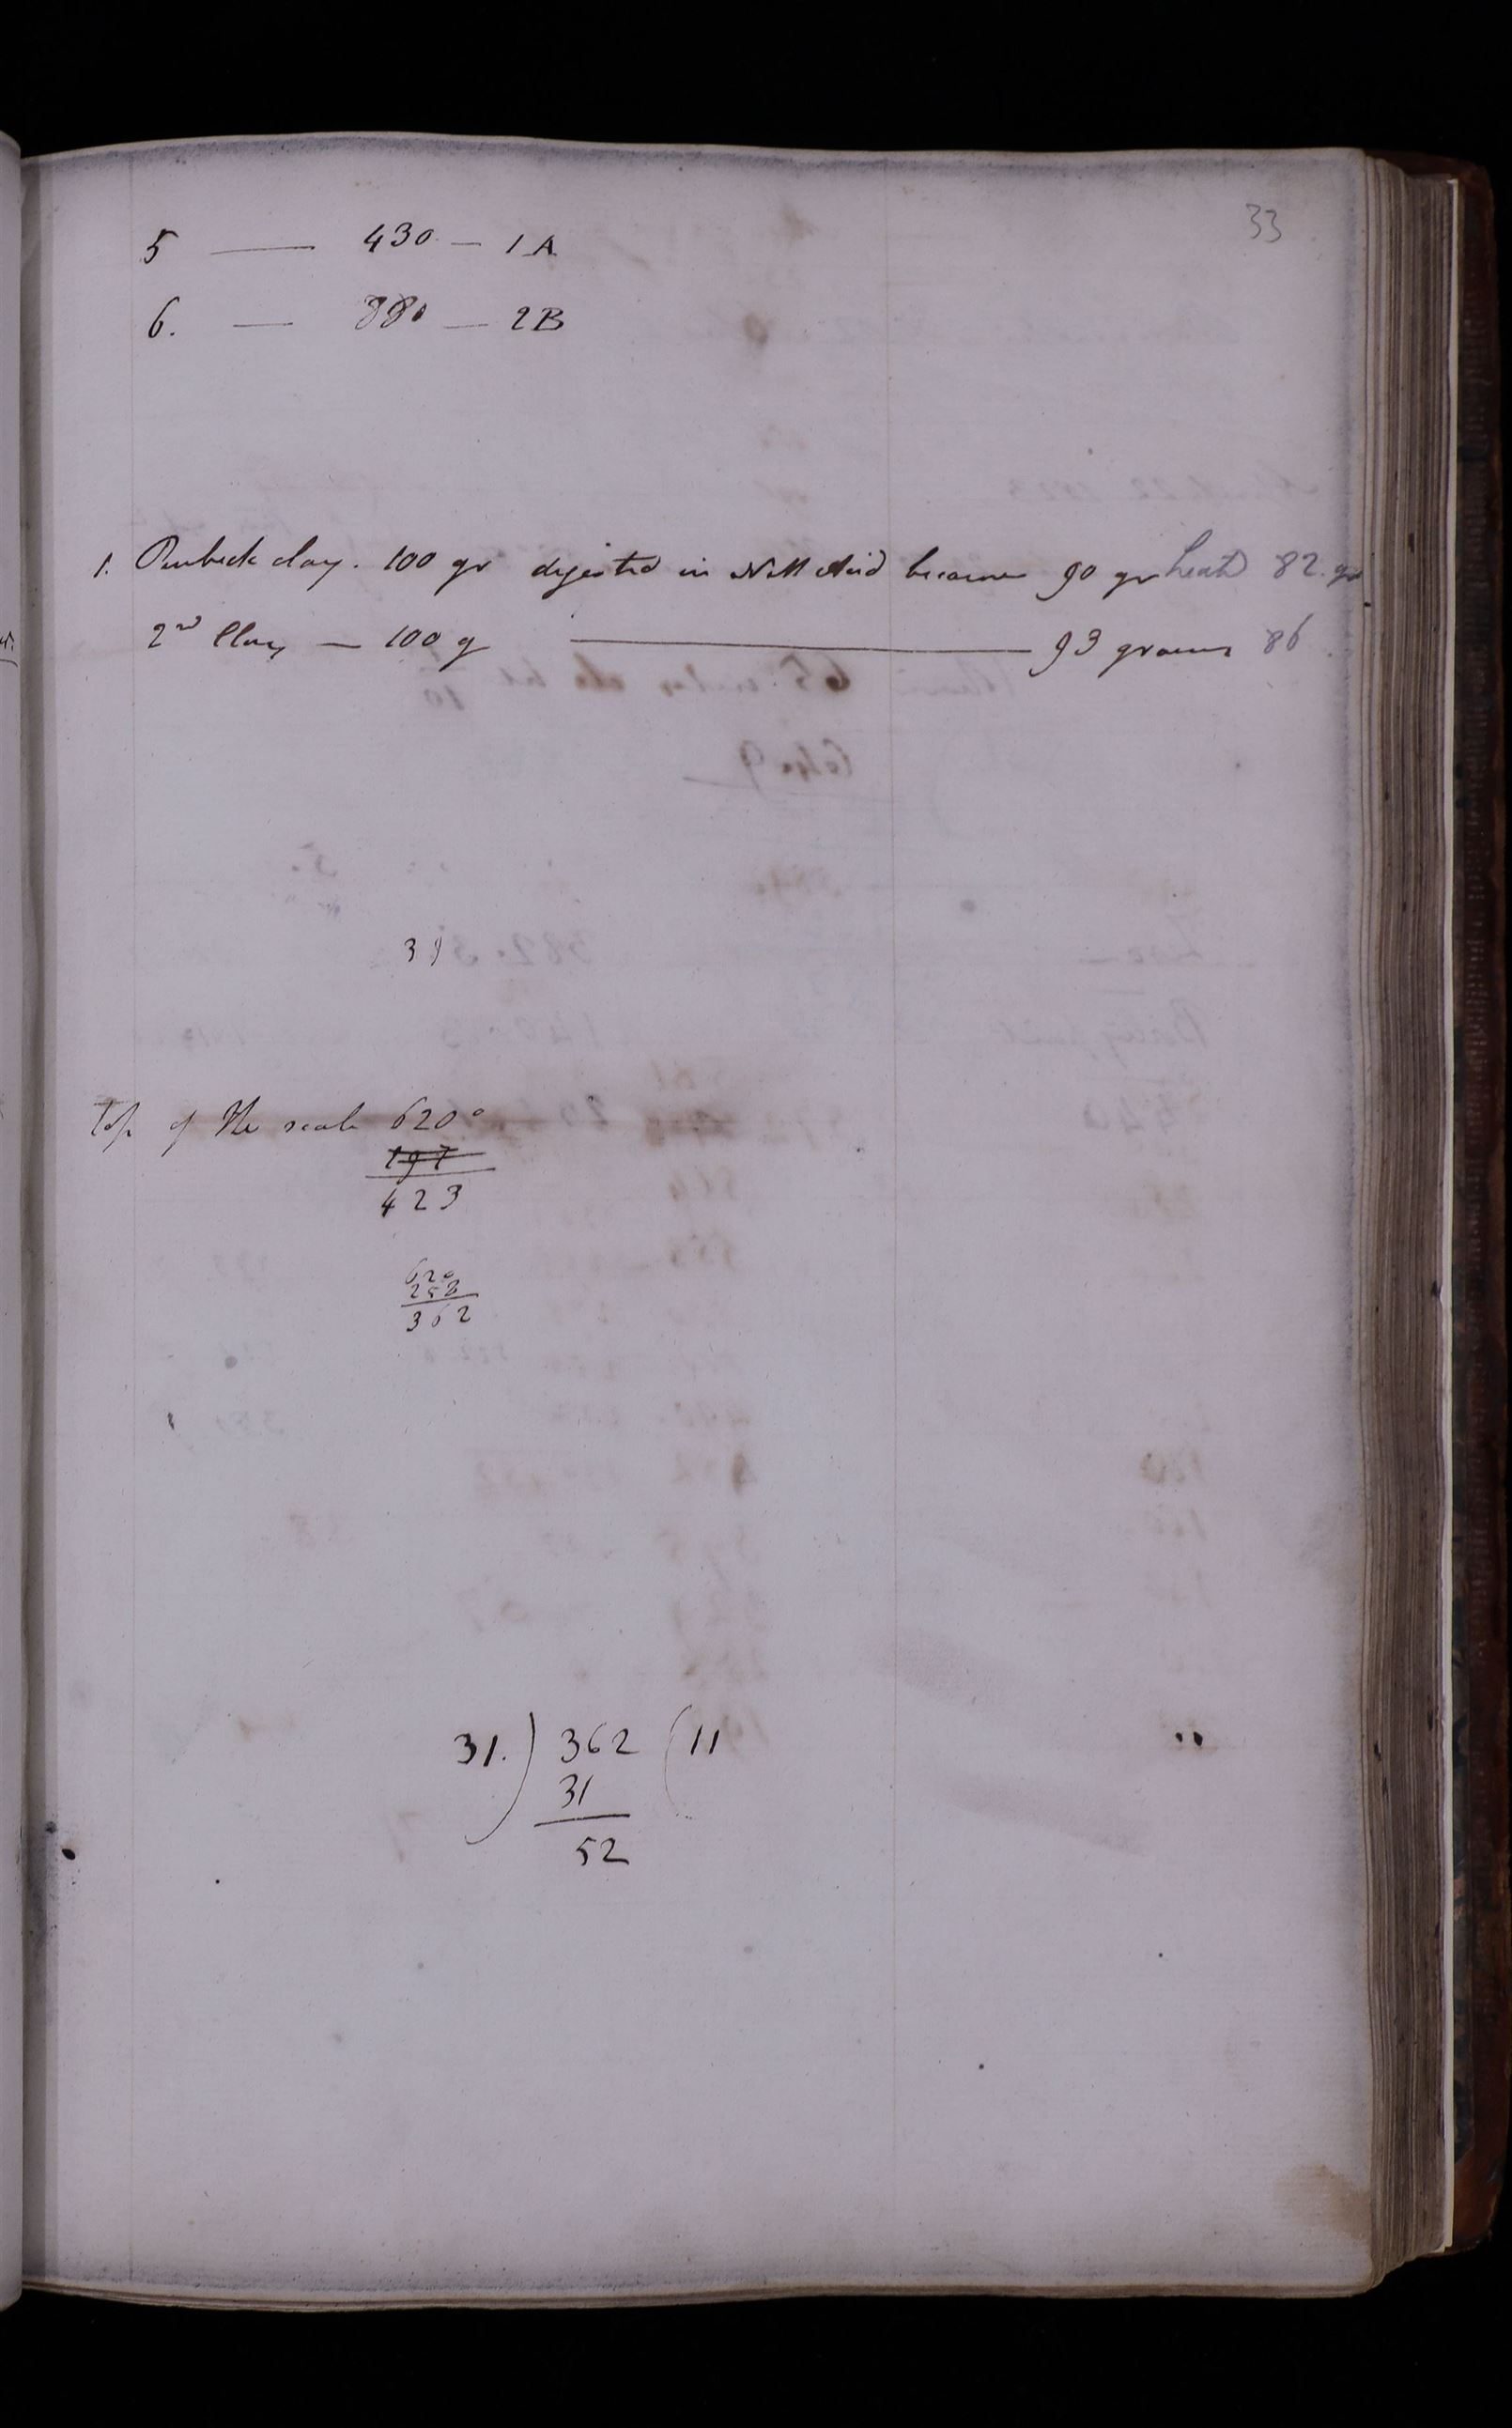 33
5 — 430 — 1 A
6. — 880 — 2 B
1. Purbeck clay. 100 gr digested in N M Acid became 90 gr heatd 82. gr
2nd Clay — 100 g ——— 93 grains 86
31
Top of the scale 620°
197
423
620
258
362
31.) 362 (11
31
52